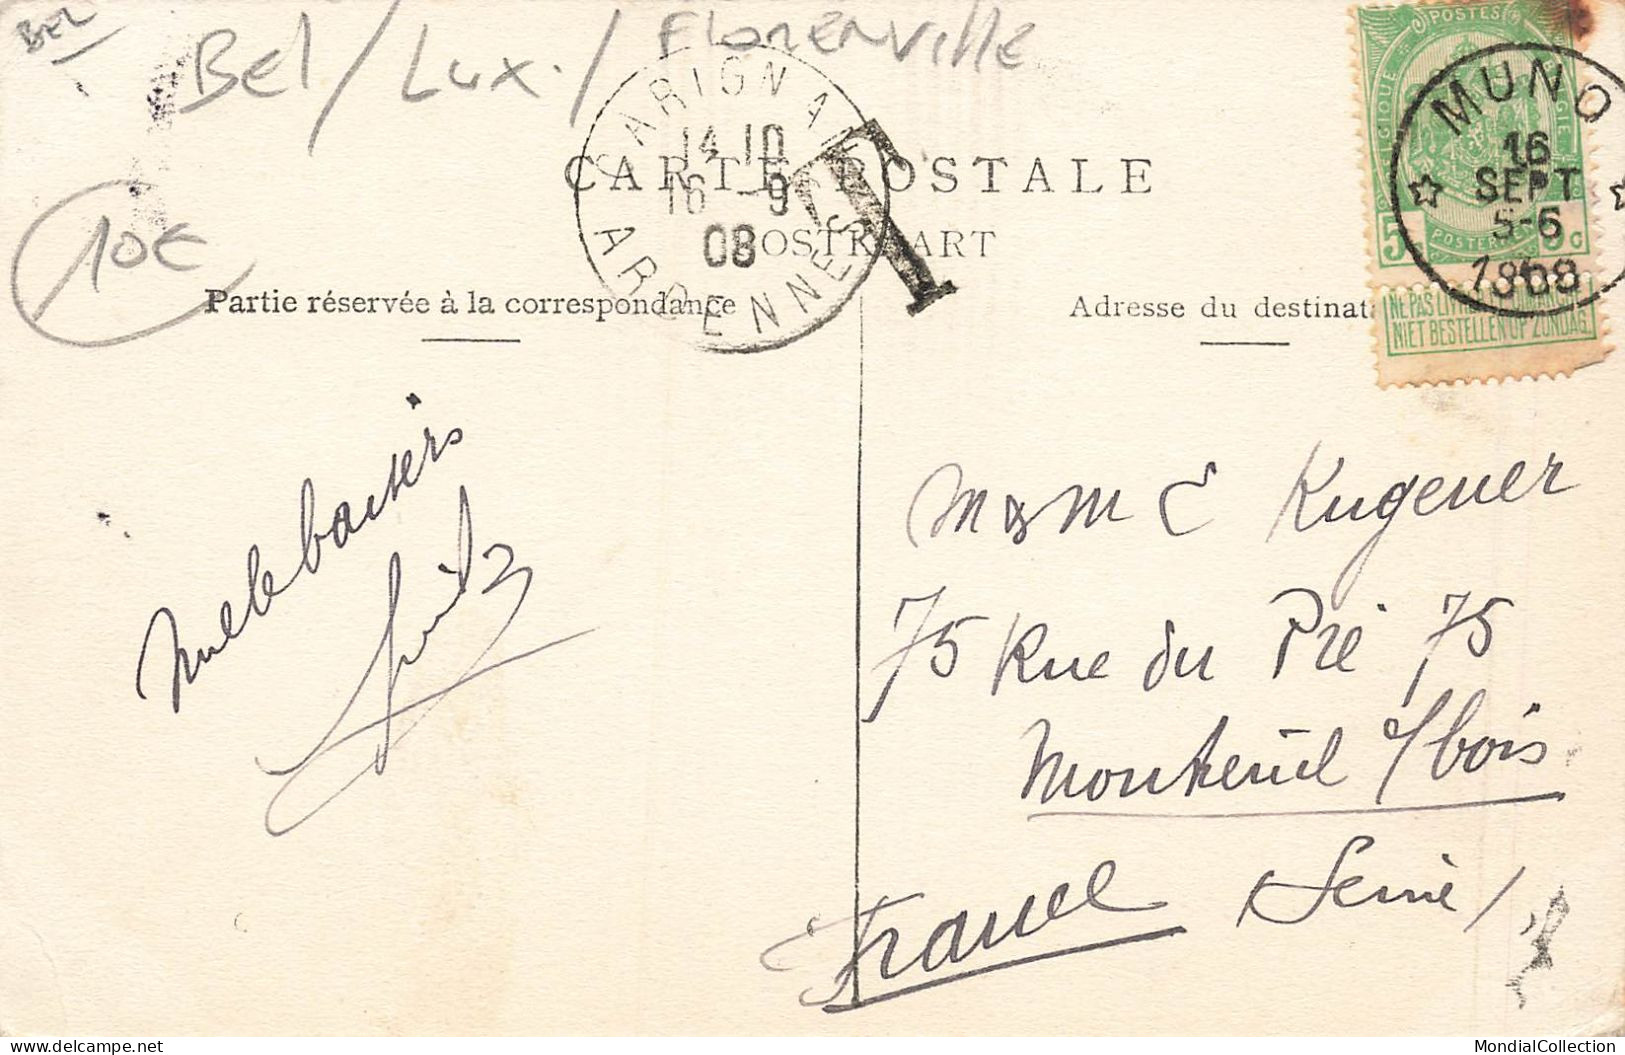 BEL
Bel / Lux. / Florenville
10€
CARIGNAN
14 10
16 -9
08
ARDENNES
T
CARTE POSTALE
POSTKAART
Partie réservée à la correspondance
Adresse du destinat
POSTES
BELGIQUE
5 c
POSTERIJEN
NE PAS LIVRER LE DIMANCHE
NIET BESTELLEN OP ZONDAG.
MUNO
16
SEPT
5-6
1908
Mille baisers
Fritz
M & Mme E Kugener
75 Rue du Pré 75
Montreuil s/bois
(Seine)
France
www.delcampe.net
MondialCollection